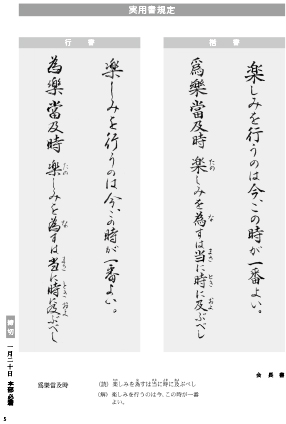 実用書規定
楷書
楽しみを行うのは今、この時が一番よい。
爲樂當及時 楽しみを為すは当に時に及ぶべし
たの な まさ とき およ
行書
楽しみを行うのは今、この時が一番よい。
為樂當及時 楽しみを為すは当に時に及ぶべし
たの な まさ とき およ
会長書
爲樂當及時
(読) 楽しみを為すは当に時に及ぶべし
(解) 楽しみを行うのは今、この時が一番
よい。
締切 一月二十日 本部必着
5